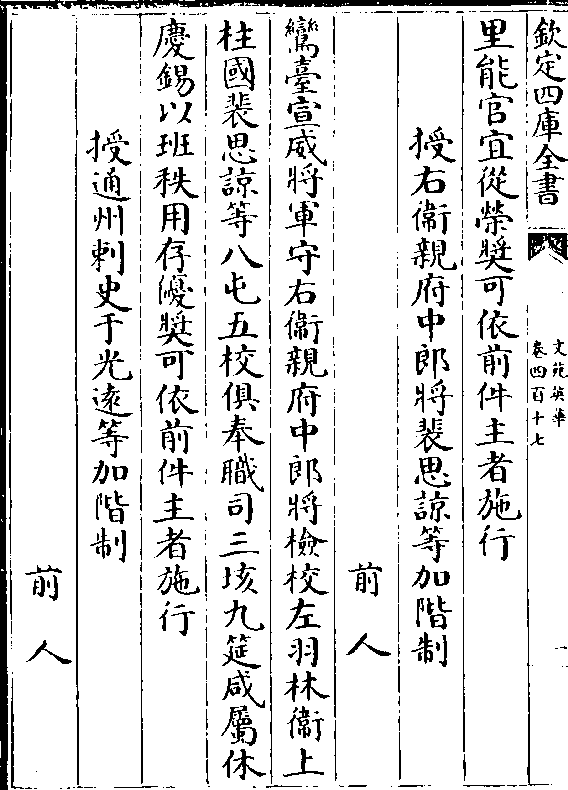 欽定四庫全書
文苑英華
卷四百十七
里能官宜從榮奬可依前件主者施行
授右衞親府中郎將裴思諒等加階制
前人
鸞臺宣威將軍守右衞親府中郎將檢校左羽林衞上
柱國裴思諒等八屯五校俱奉職司三垓九筵咸屬休
慶錫以班秩用存優奬可依前件主者施行
授通州刺史于光遠等加階制
前人